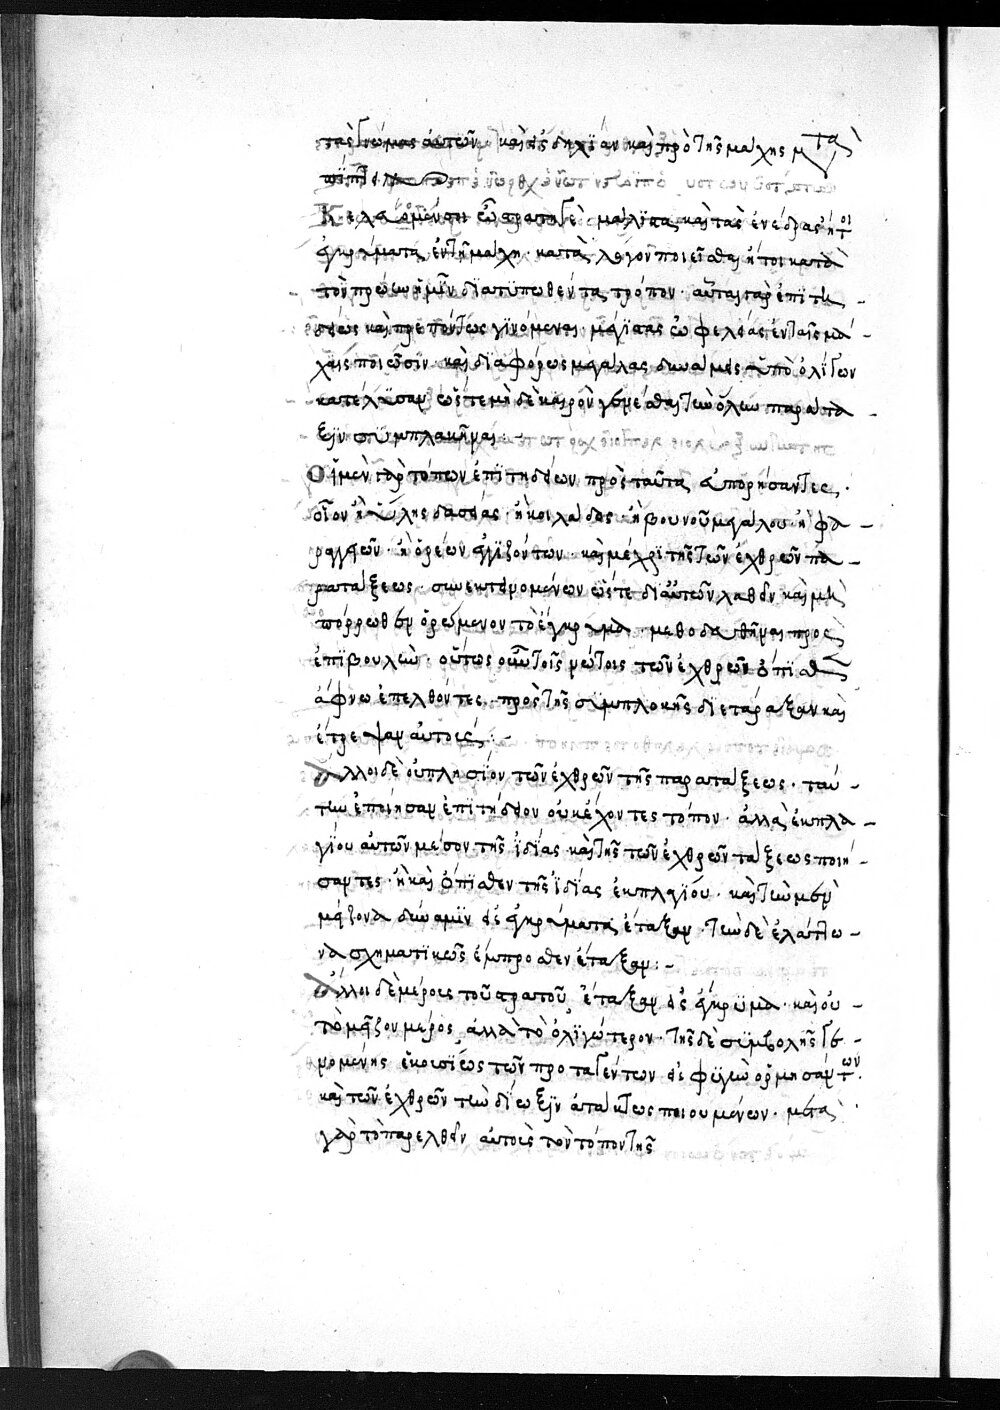 τὰς γνώμας αὐτῶν καὶ εἰ δηχίαν καὶ πρὸ τῆς μάχης μετὰ
Κελευόμέν σοι ὦ στρατηγὲ μάλιστα καὶ τὰς ἐνέδρας ἤτοι
ἐγκρύμματα ἐν τῇ μάχη· κατὰ λόγον ποιεῖσθαι ἤτοι κατὰ
τὸν πρώω ἡμῖν διατυπωθέντα τρόπον· αὗται γὰρ ἐπιτη
δείως καὶ πρεπόντως γινόμεναι μεγίστας ὠφελείας ἐν ταῖς μά
χαις ποιοῦσιν· καὶ διαφόρως μεγάλας δυνάμεις ἀπὸ ὀλίγων
κατέλυσαν ὥστε μὴ δὲ καιρὸν γενέσθαι τὴν ὅλην παράτα
ξιν συμπλακῆναι:-
Οἱ μὲν γὰρ τόπων ἐπιτηδείων πρὸς ταῦτα εὐπορήσαντες·
οἷον ἢ ὕλης δασείας· ἢ κοιλάδος· ἢ βουνοῦ μεγάλου ἢ φα
ράγγων· ἢ ὀρέων ἐγγιζόντων· καὶ μέχρι τῆς τῶν ἐχθρῶν πα
ρατάξεως· συνεκτερομένων ὥστε δι' αὐτῶν λαθεῖν καὶ μὴ
πόρρωθεν ὁρώμενον τὸ ἔγκρυμα· μεθοδευθῆναι πρὸς
ἐπιβουλὴν· οὕτως οὖν τοῖς νώτοις τῶν ἐχθρῶν ὄπισθεν
ἄφνω ἐπελθόντες· πρὸ τῆς συμπλοκῆς διετάραξαν καὶ
ἔτρεψαν αὐτούς:-
Ἄλλοι δὲ οὐ πλησίον τῶν ἐχθρῶν τῆς παρατάξεως· ταύ
την ἐποίησαν ἐπιτήδειον οὐκ ἔχοντες τόπον· ἀλλὰ ἐκ πλα
γίου αὐτῶν μέσον τῆς ἰδίας καὶ τῆς τῶν ἐχθρῶν τάξεως ποιή
σαντες· ἢ καὶ ὄπισθεν τῆς ἰδίας ἐκ πλαγίου· καὶ τὴν μὲν
μείζονα δύναμιν εἰς ἐγκρύματα ἔταξαν· τὴν δὲ ἐλάττω
να σχηματικῶς ἔμπροσθεν ἔταξαν:-
Ἄλλοι δὲ μέρος τοῦ στρατοῦ ἔταξαν εἰς ἔγκρυμα· καὶ οὐ
τὸ μεῖζον μέρος ἀλλὰ τὸ ὀλιγώτερον· τῆς δὲ συμβολῆς γε
νομένης ἐκουσίως τῶν προταγέντων εἰς φυγὴν ὁρμησάντων·
καὶ τῶν ἐχθρῶν τὴν δίωξιν ἀτάκτως ποιουμένων· μετὰ
γὰρ τὸ παρελθεῖν αὐτοὺς τὸν τόπον τῆς